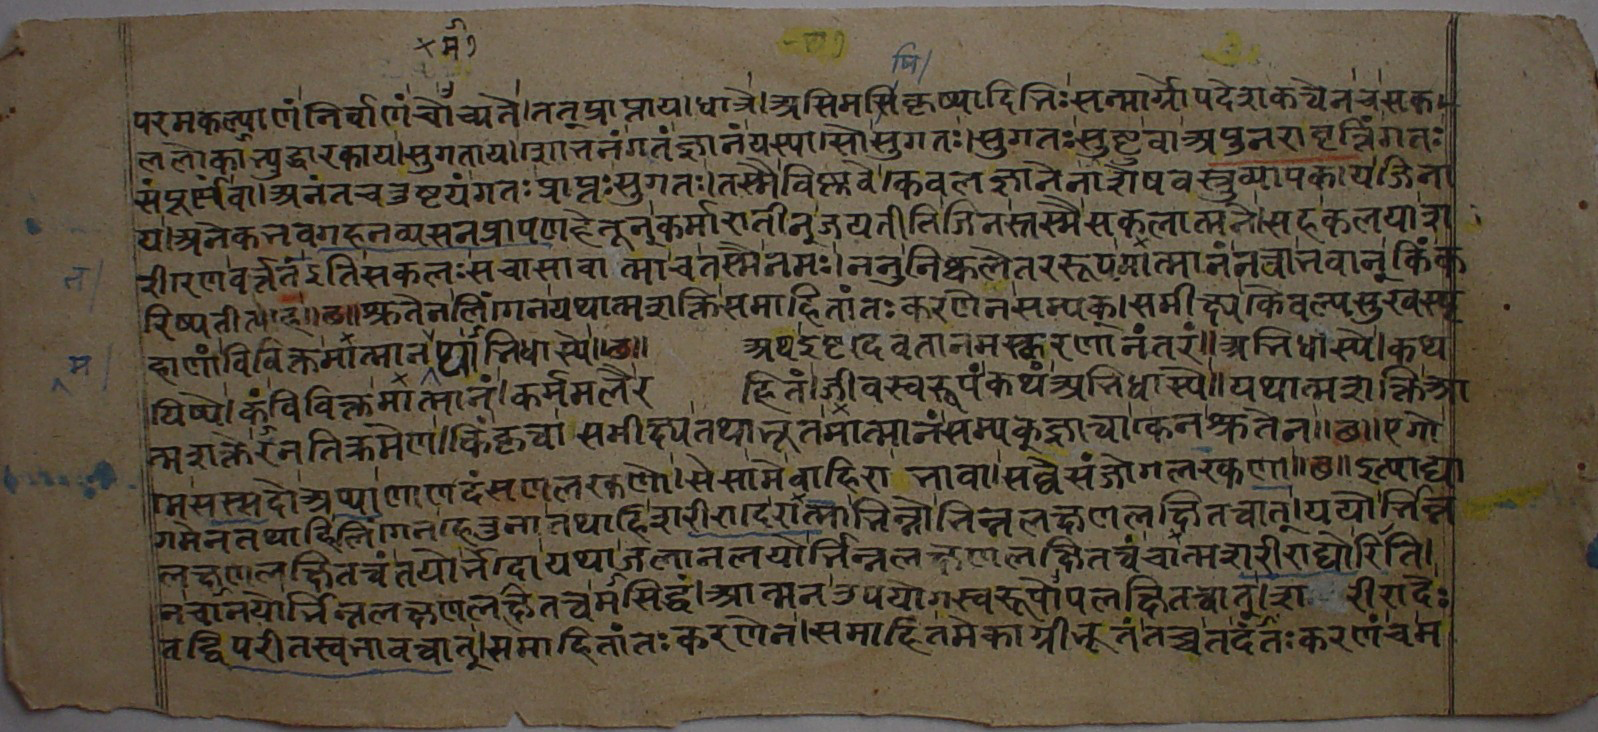 र्म
षि
परमकल्याणं निर्वाणं चोच्यते। तत् प्राप्ताय। धात्रे। असिमसिकृष्यादिभिः सन्मार्गोपदेशकत्वेन च सक
ललोकाभ्युद्धारकाय। सुगताय। शोभनं गतं ज्ञानं यस्यासौ सुगतः। सुगतः सुष्टु वा अपुनरावृत्तिं गतः
संपूर्णं वा। अनंतचतुष्टयं गतः प्राप्तः सुगतः। तस्मै विष्णवे। केवलज्ञानेनाशेषवस्तुव्यापकाय। जिना
य। अनेकभवगहनव्यसनप्रापणहेतून् कर्मारातीन् जयतीति जिनस्तस्मै सकलात्मने। सह कलया शा
रीरेण वर्त्तत इति सकलः स चासावात्मा च तस्मै नमः। ननु निष्कलेतररूपमात्मानं नत्वा भवान् किं क
रिष्यतीत्याह॥छ॥ श्रुतेन लिंगेन यथात्मशक्ति समाहितांतःकरणेन सम्यक्। समीक्ष्य कैवल्यसुखस्पृ
हाणां विविक्तमात्मानमथाभिधास्ये॥छ॥ अथ इष्टदेवतानमस्करणानंतरं॥ अभिधास्ये। कथ
यिष्ये। कं विविक्तमात्मानं। कर्ममलैर हितं। जीवस्वरूपं कथं अभिधास्ये॥ यथात्मशक्ति आ
त्मशक्तेरनतिक्रमेण। किं कृत्वा समीक्ष्य तथाभूतमात्मानं सम्यक् ज्ञात्वा। केन श्रुतेन॥छ॥ एगो
मे सस्सदो अप्पा णाणदंसणलरकणो। सेसा मे वाहिरा भावा। सव्वे संजोगलरकणा॥छ॥ इत्याद्या
गमेन तथा हि लिंगेन हेतुना तथा हि शरीरादिरात्माभिन्नो भिन्नलक्षणलक्षितत्वात्। ययोर्भिन्न
लक्षणलक्षितत्वं तयोर्भेदो यथा जलानलयोर्भिन्नलक्षणलक्षितत्वं चात्मशरीराद्योरिति।
न चानयोर्भिन्नलक्षणलक्षितत्वमसिद्धं। आत्मन उपयोगस्वरूपोपलक्षितत्वात्। श रीरादेः
तद्विपरीतस्वभावत्वात्। समाहितांतःकरणेन। समाहितमेकाग्रीभूतं तच्च तदंतःकरणं च म